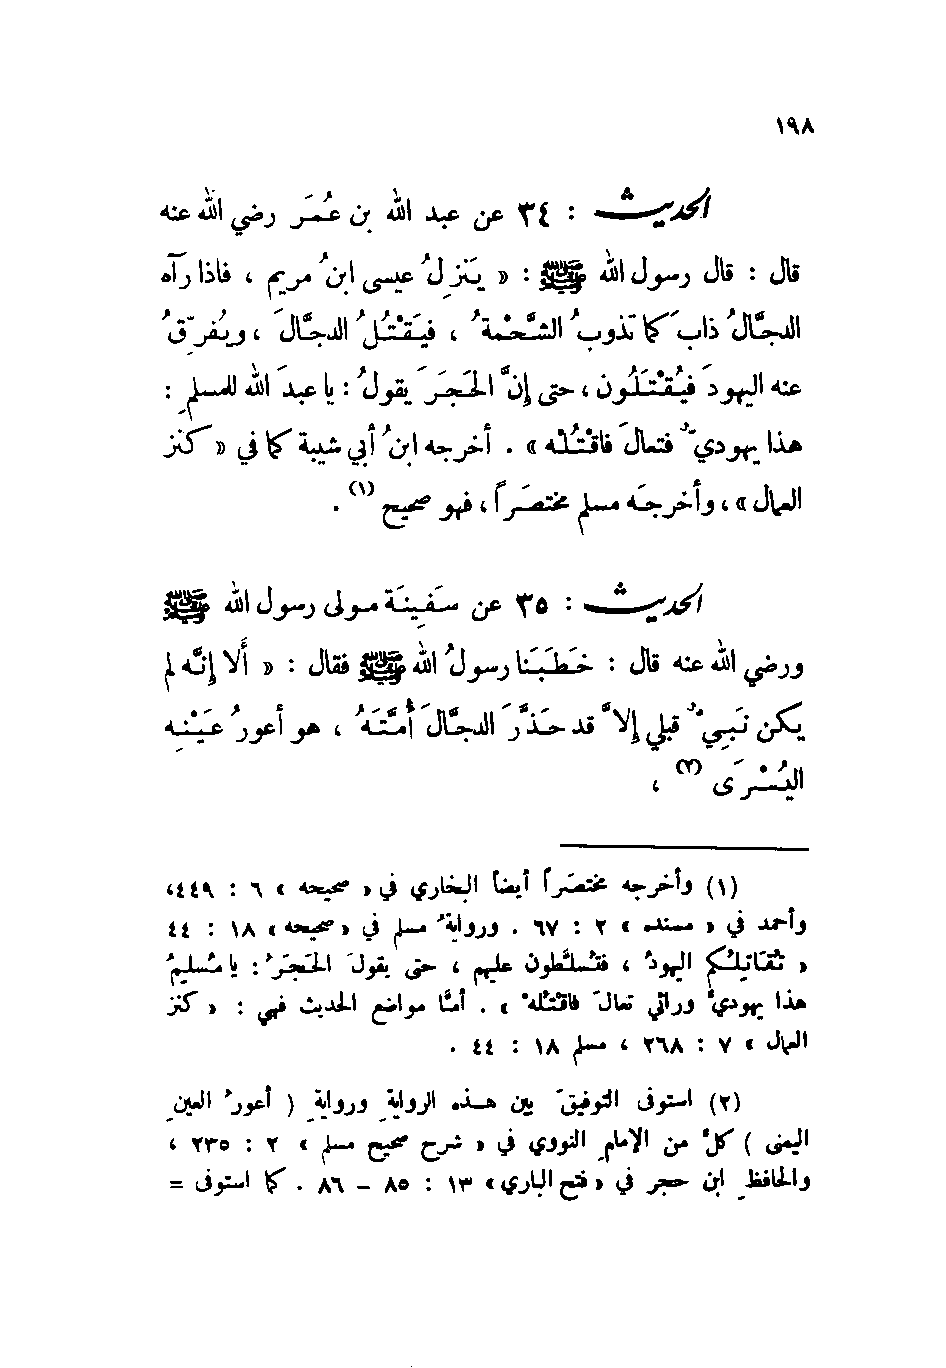 ١٩٨
الحديث : ٣٤ عن عبد الله بن عُمَر رضي الله عنه
قال : قال رسول الله ﷺ : « يَنزِلُ عيسى ابنُ مريم ، فاذا رآه
الدجَّالُ ذاب كما تذوبُ الشَّحْمةُ ، فيَقْتُلُ الدجَّالَ ، ويُفرِّقُ
عنه اليهودَ فيُقْتَلُون ، حتى إنَّ الحَجَرَ يقولُ : يا عبدَ الله للمسلمِ :
هذا يهوديٌّ فتعالَ فاقْتُلْه » . أخرجه ابنُ أبي شيبة كما في « كنز
العمال » ، وأخرجَه مسلم مختصَراً ، فهو صحيح (١) .
الحديث : ٣٥ عن سَفِينَة مولى رسول الله ﷺ
ورضي الله عنه قال : خَطَبَنا رسولُ الله ﷺ فقال : « أَلا إنَّه لم
يكن نَبِيٌّ قبلي إلاَّ قد حَذَّرَ الدجَّالَ أُمَّتَهُ ، هو أعورُ عَيْنِه
اليُسْرَى (٢) ،
(١) وأخرجه مختصَراً أيضاً البخاري في « صحيحه » ٦ : ٤٤٩،
وأحمد في « مسنده » ٢ : ٦٧ . وروايةُ مسلم في « صحيحه » ١٨ : ٤٤
« تُقاتِلُكم اليهودُ ، فتُسلَّطون عليهم ، حتى يقولَ الحَجَرُ : يا مُسلِمُ
هذا يهوديٌّ ورائي تعالَ فاقتُلْه » . أمَّا مواضع الحديث فهي : « كنز
العمال » ٧ : ٢٦٨ ، مسلم ١٨ : ٤٤ .
(٢) استوفى التوفيقَ بين هذه الروايةِ وروايةِ ( أعورُ العينِ
اليمنى ) كلٌّ من الإمامِ النووي في « شرح صحيح مسلم » ٢ : ٢٣٥ ،
والحافظِ ابن حجر في « فتح الباري » ١٣ : ٨٥ - ٨٦ . كما استوفى =